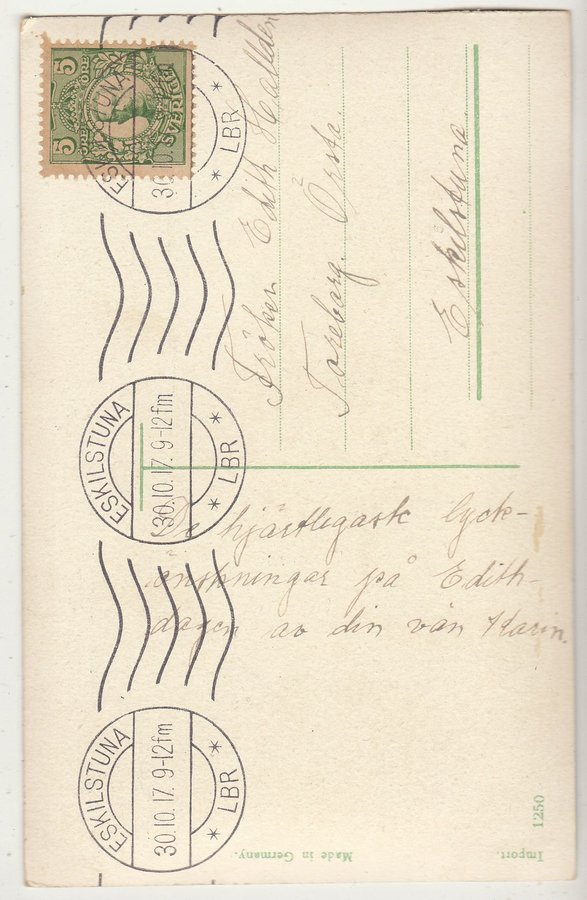 5 ÖRE 5 ÖRE
SVERIGE
ESKILSTUNA
30.10.
LBR
Fröken Edith Hallden
Toreberg. Örsta.
Eskilstuna
ESKILSTUNA
30.10.17. 9-12 fm
LBR
De hjärtlegaste lyck-
önskningar på Edith-
dagen av din vän Karin.
ESKILSTUNA
30.10.17. 9-12 fm
LBR
Made in Germany.
Import.
1250